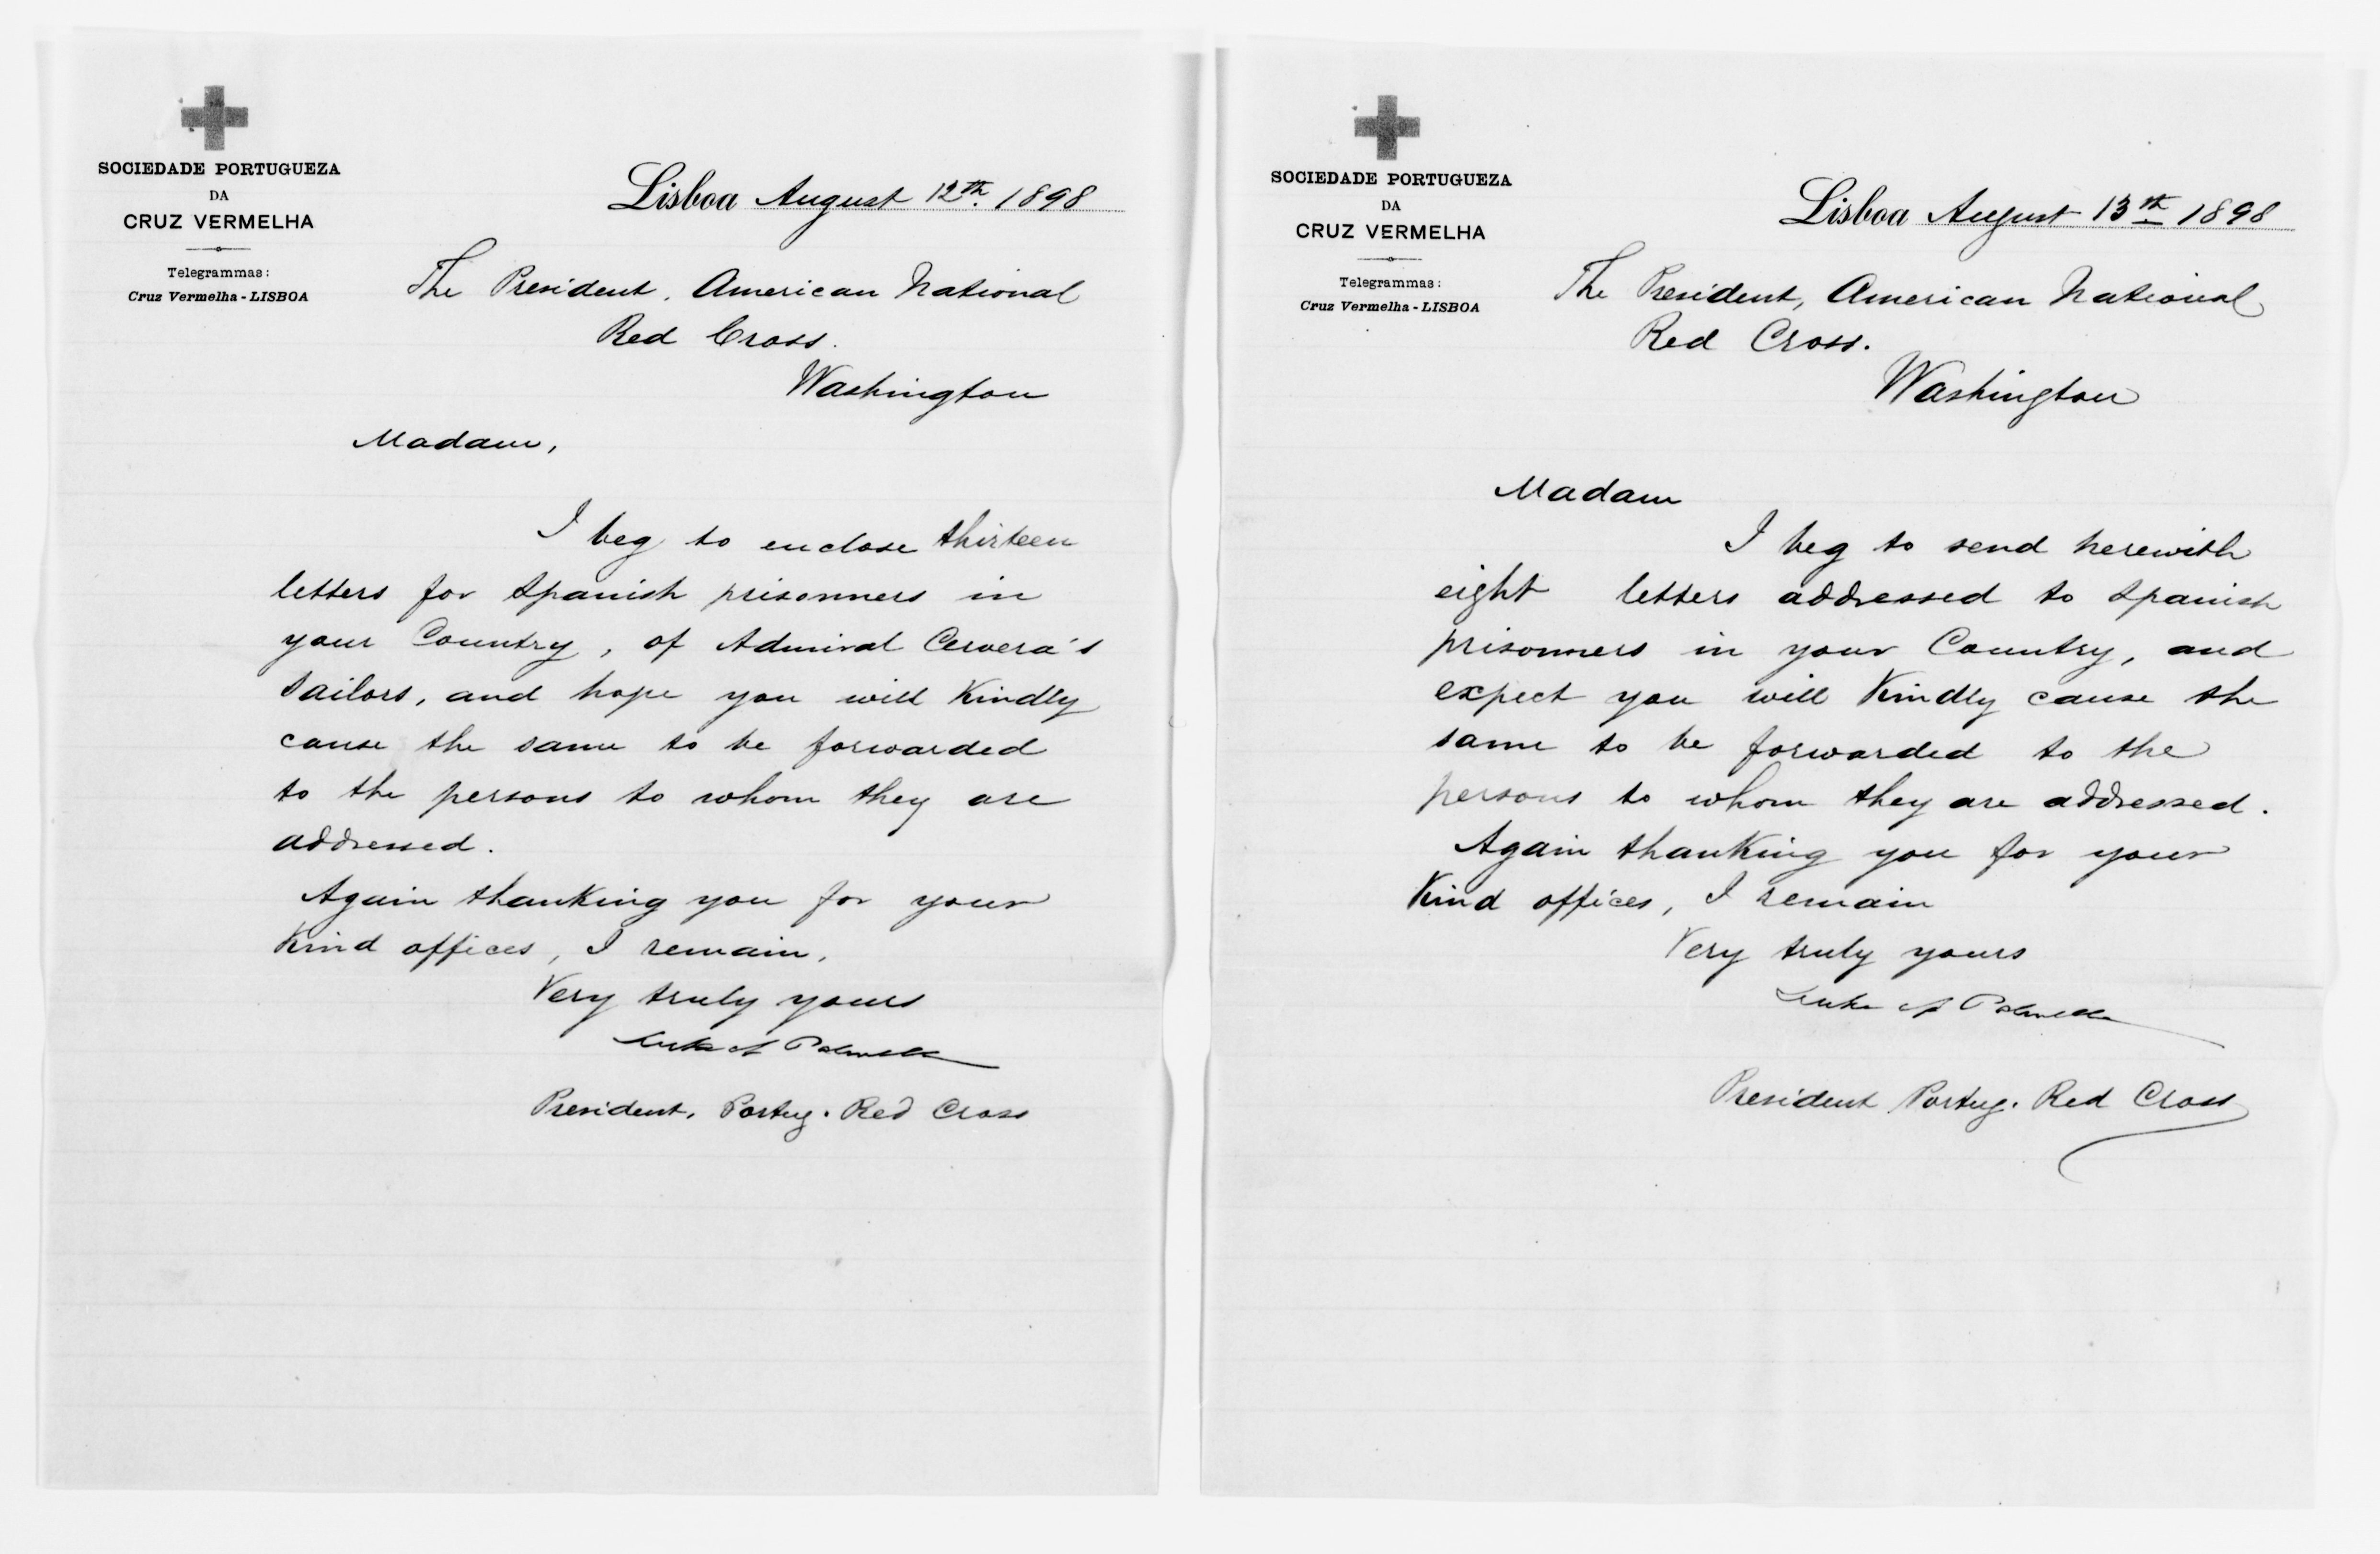 SOCIEDADE PORTUGUEZA
DA
CRUZ VERMELHA
Telegrammas:
Cruz Vermelha - LISBOA
Lisboa August 12th. 1898
The President, American National
Red Cross.
Washington
Madam,
I beg to enclose thirteen
letters for Spanish prisonners in
your Country, of Admiral Cervera's
sailors, and hope you will Kindly
cause the same to be forwarded
to the persons to whom they are
addressed.
Again thanking you for your
Kind offices, I remain,
Very truly yours
Duke of Palmella
President, Portug. Red Cross
SOCIEDADE PORTUGUEZA
DA
CRUZ VERMELHA
Telegrammas:
Cruz Vermelha - LISBOA
Lisboa August 13th 1898
The President, American National
Red Cross.
Washington
Madam
I beg to send herewith
eight letters addressed to Spanish
prisonners in your Country, and
expect you will Kindly cause the
same to be forwarded to the
persons to whom they are addressed.
Again thanking you for your
Kind offices, I remain
Very truly yours
Duke of Palmella
President Portug. Red Cross